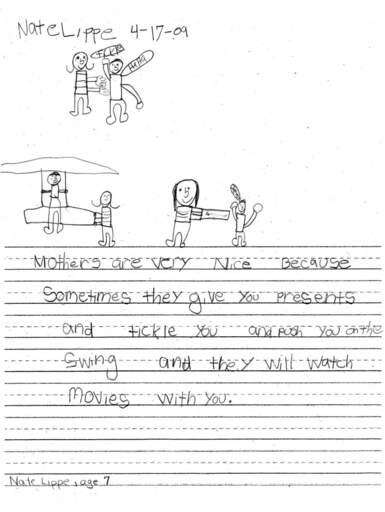 Nate Lippe 4-17-09
Mothers are very nice Because
Sometimes they give you presents
and tickle you and push you on the
Swing and they will watch
movies with you.
Nate Lippe, age 7